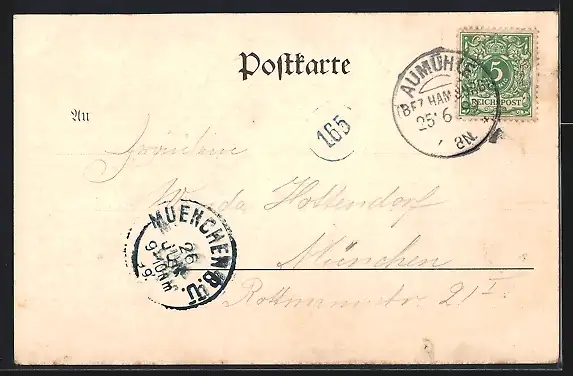 Postkarte
AUMÜHLE
(BEZ. HAMBURG)
25 6
8N.
5
REICHSPOST
An
165
Fräulein
Wanda Hottendorf
MUENCHEN B.Ü.
26
JUN
9-10
München
21 I